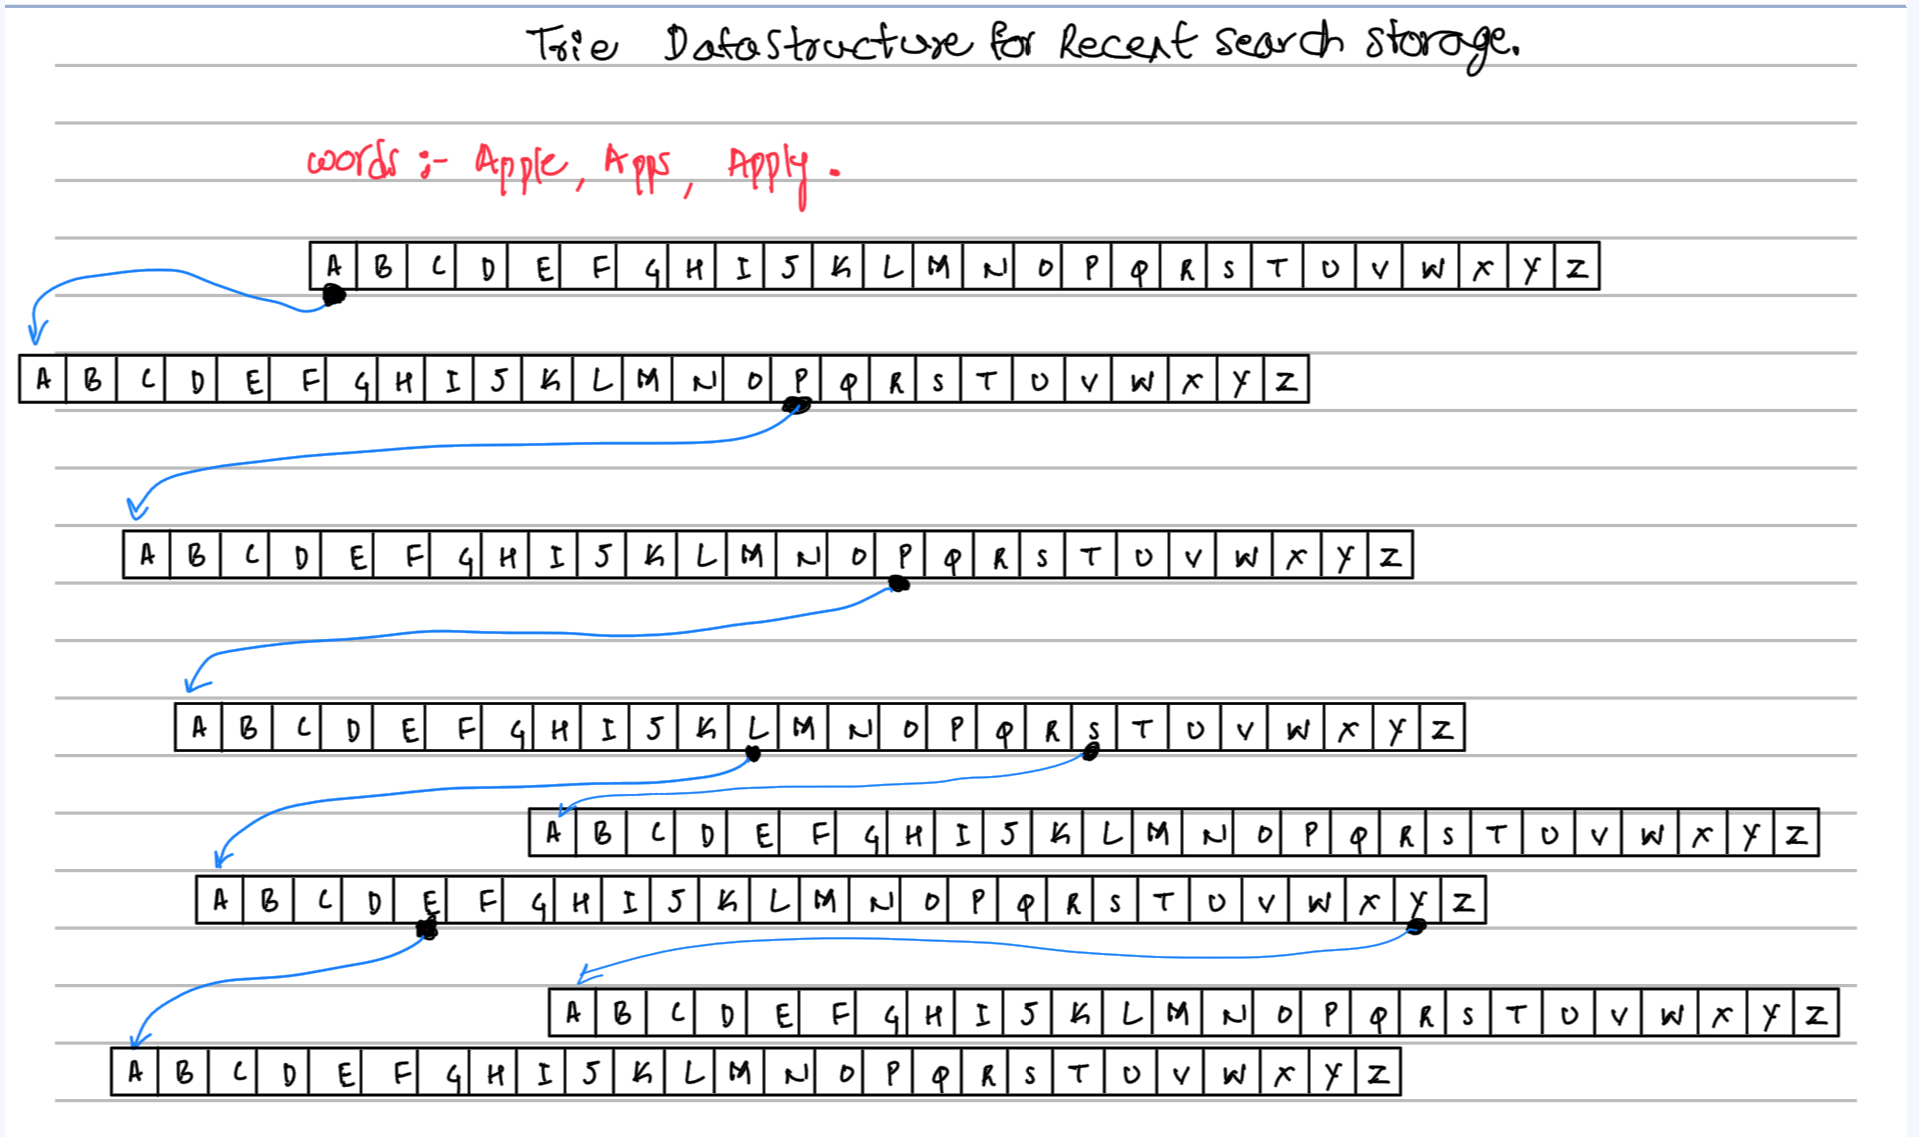 Trie Datastructure for Recent search storage.
words :- Apple, Apps, Apply.
A B C D E F G H I J K L M N O P Q R S T U V W X Y Z
A B C D E F G H I J K L M N O P Q R S T U V W X Y Z
A B C D E F G H I J K L M N O P Q R S T U V W X Y Z
A B C D E F G H I J K L M N O P Q R S T U V W X Y Z
A B C D E F G H I J K L M N O P Q R S T U V W X Y Z
A B C D E F G H I J K L M N O P Q R S T U V W X Y Z
A B C D E F G H I J K L M N O P Q R S T U V W X Y Z
A B C D E F G H I J K L M N O P Q R S T U V W X Y Z